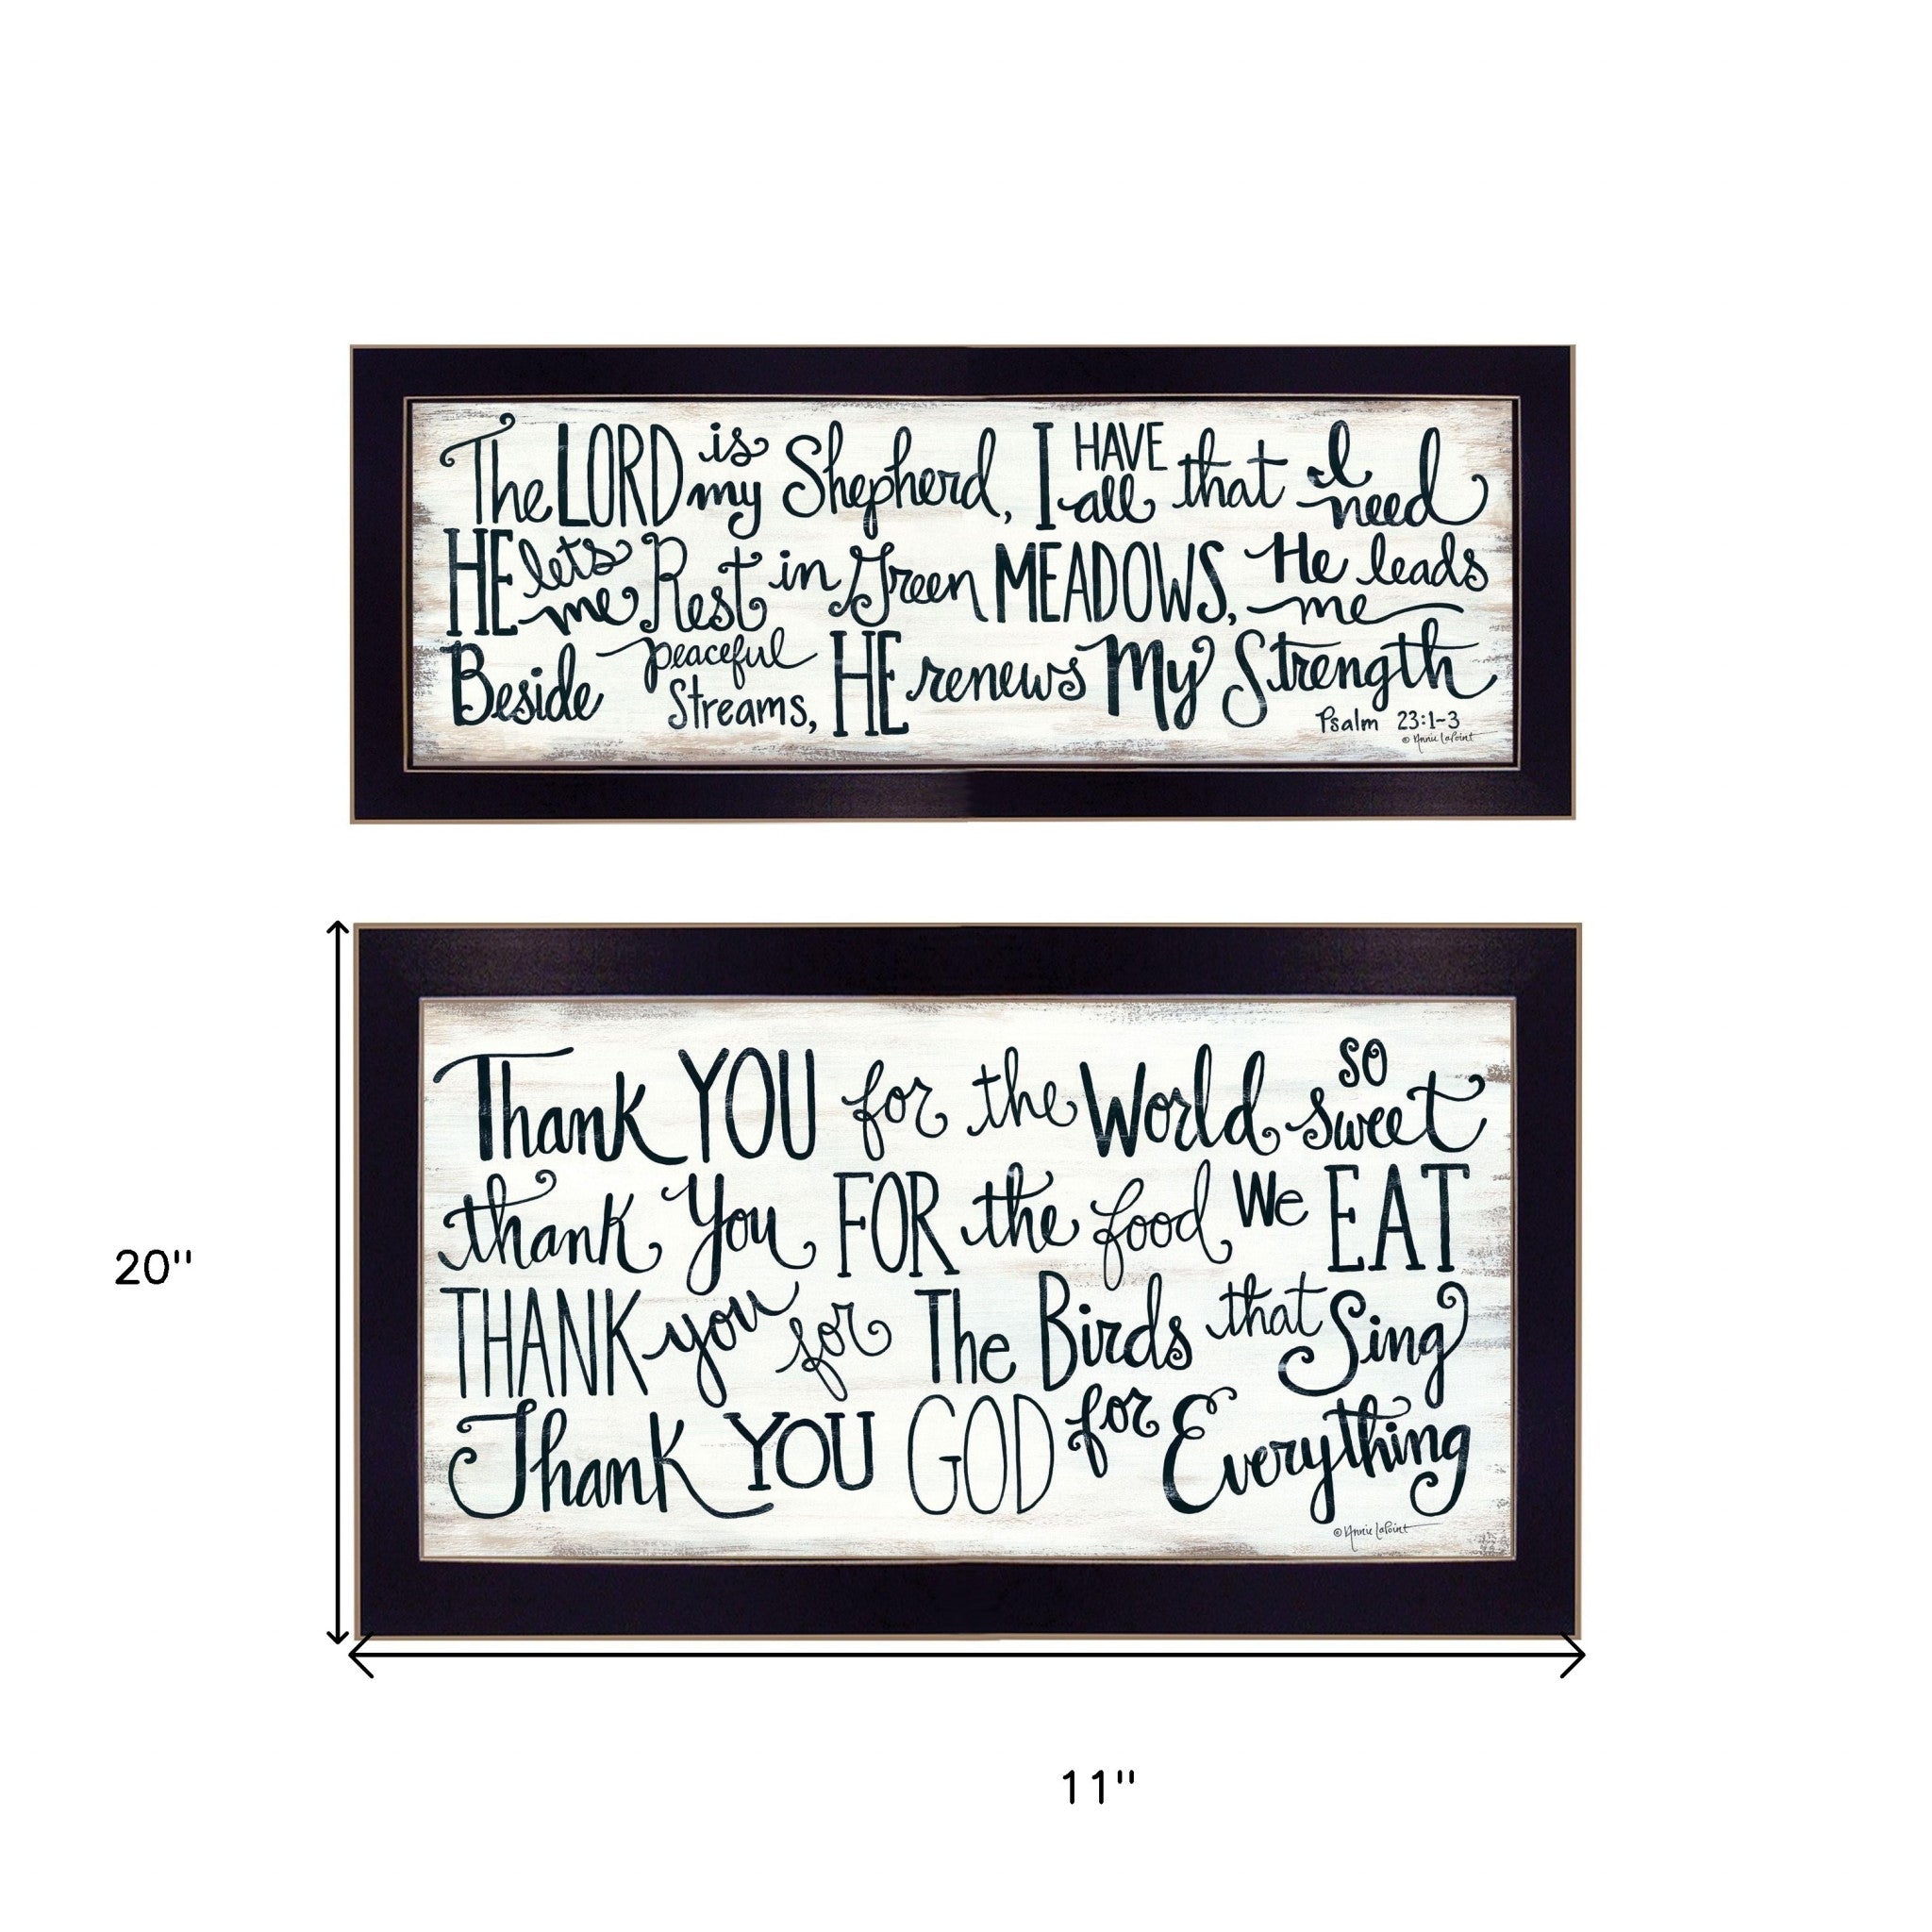 The LORD is my Shepherd, I HAVE all that I need
HE lets me Rest in Green MEADOWS, He leads me
Beside peaceful Streams, HE renews My Strength
Psalm 23:1-3
© Annie LaPoint
Thank YOU for the World so sweet
thank You FOR the food We EAT
THANK you for The Birds that Sing
Thank YOU GOD for Everything
© Annie LaPoint
20"
11"